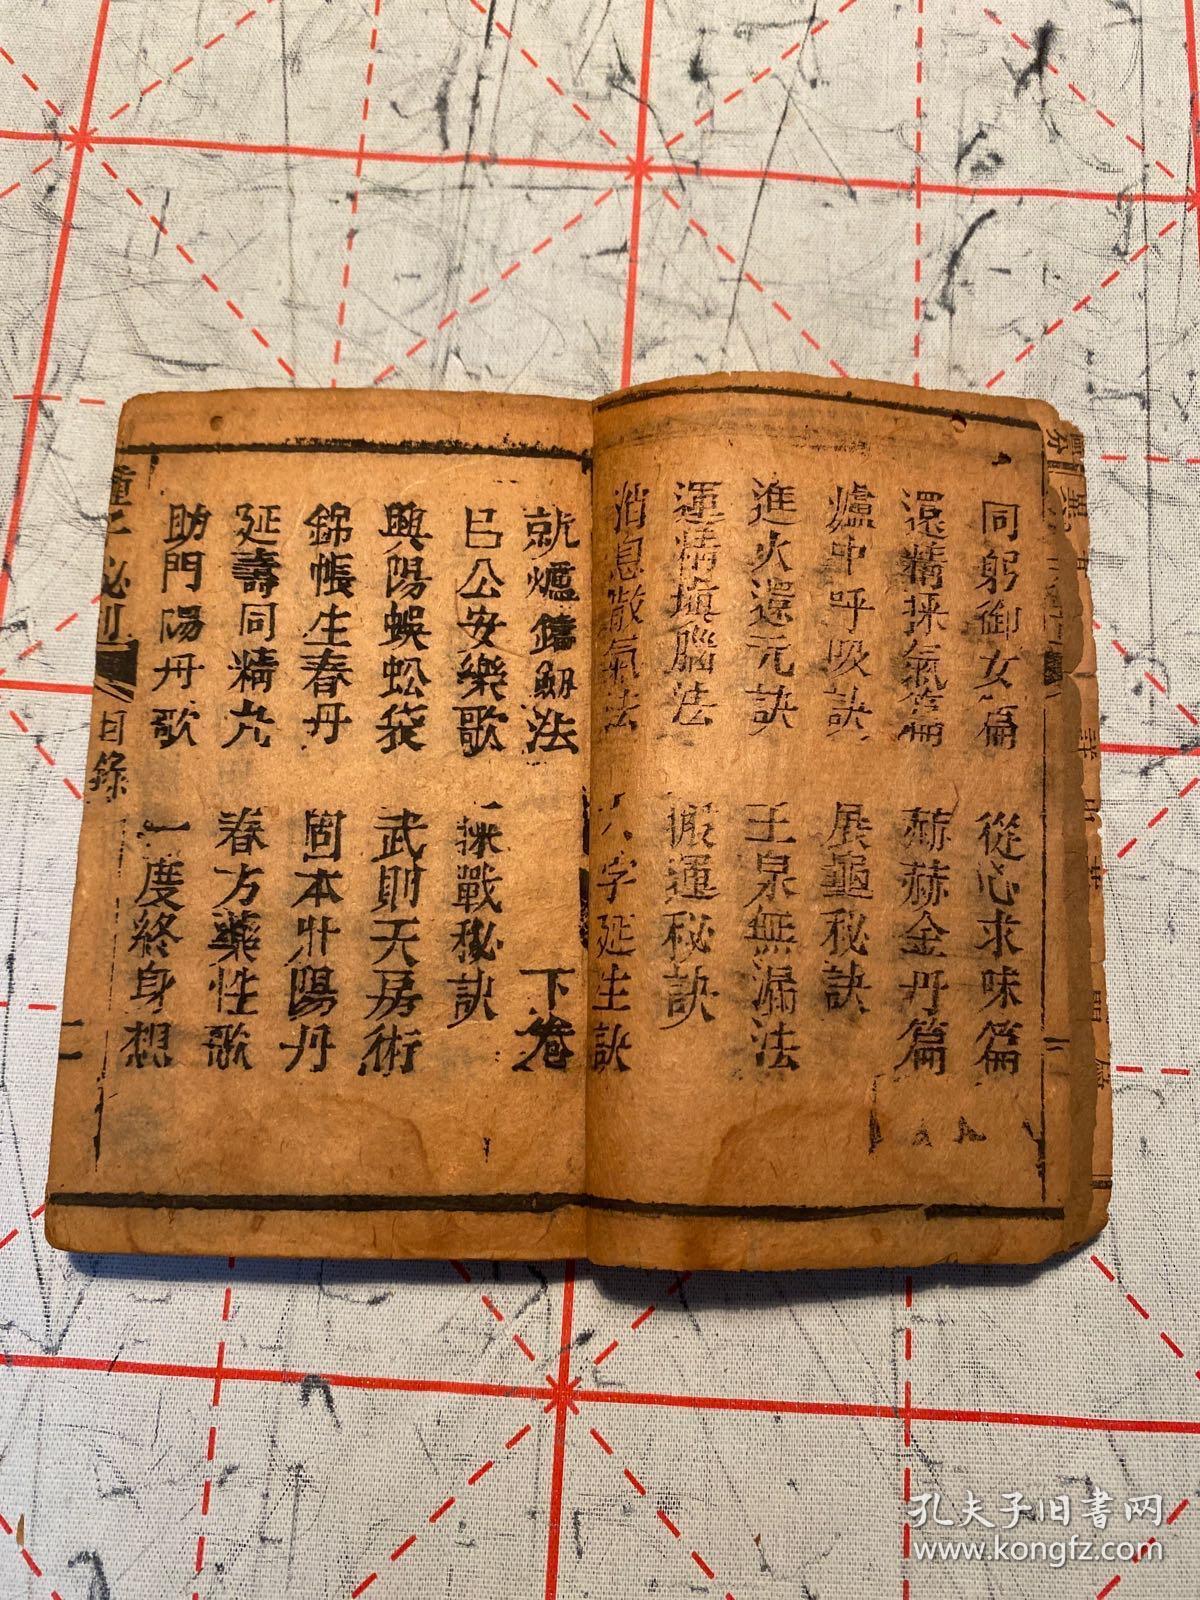 同躬御女篇 從心求味篇
還精採氣篇 赫赫金丹篇
爐中呼吸訣 展龜秘訣
進火還元訣 玉泉無漏法
運精填腦法 搬運秘訣
消息散氣法 六字延生訣
就爐鑄劒法 下卷
吕公安樂歌 採戰秘訣
興陽蜈蚣袋 武則天房術
錦帳生春丹 固本壯陽丹
延壽同精丸 春方藥性歌
助門陽丹歌 一度終身想
種子秘剖 目錄 二
孔夫子旧書网
www.kongfz.com